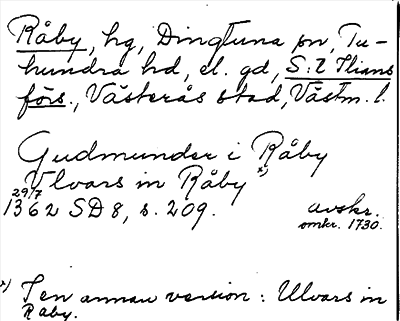 Råby, hg, Dingtuna sn, Tu-
hundra hd, el. gd, S:t Ilians
förs., Västerås stad, Västm. l.
Gudmunder i Råby
Vlvars in Råby x)
29/7
1362 SD 8, s. 209. avskr.
omkr. 1730.
x) I en annan version: Ulvars in
Raby.